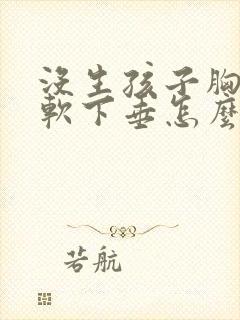 没生孩子胸
軟下垂怎麼
若航